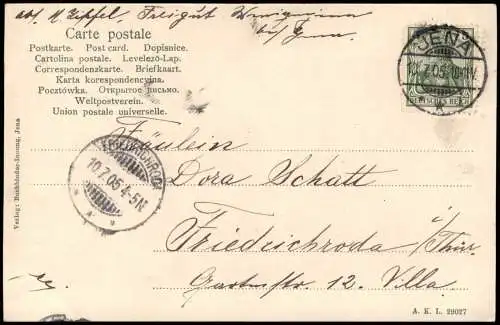 abs. M. Zipfel, Freigut Wenigenjena
bei Jena
Carte postale
Postkarte. Post card. Dopisnice.
Cartolina postale. Levelező-Lap.
Correspondenzkarte. Briefkaart.
Karta korespondencyjna.
Pocztówka. Открытое письмо.
Weltpostverein.
Union postale universelle.
JENA
7.05.
DEUTSCHES REICH
FRIEDRICHRODA
10.7.05.4-5N
Fräulein
Dora Schatt
Friedrichroda i/Thür.
Gartenstr. 12. Villa
Verlag: Buchbinder-Innung, Jena
A. K. L. 29027